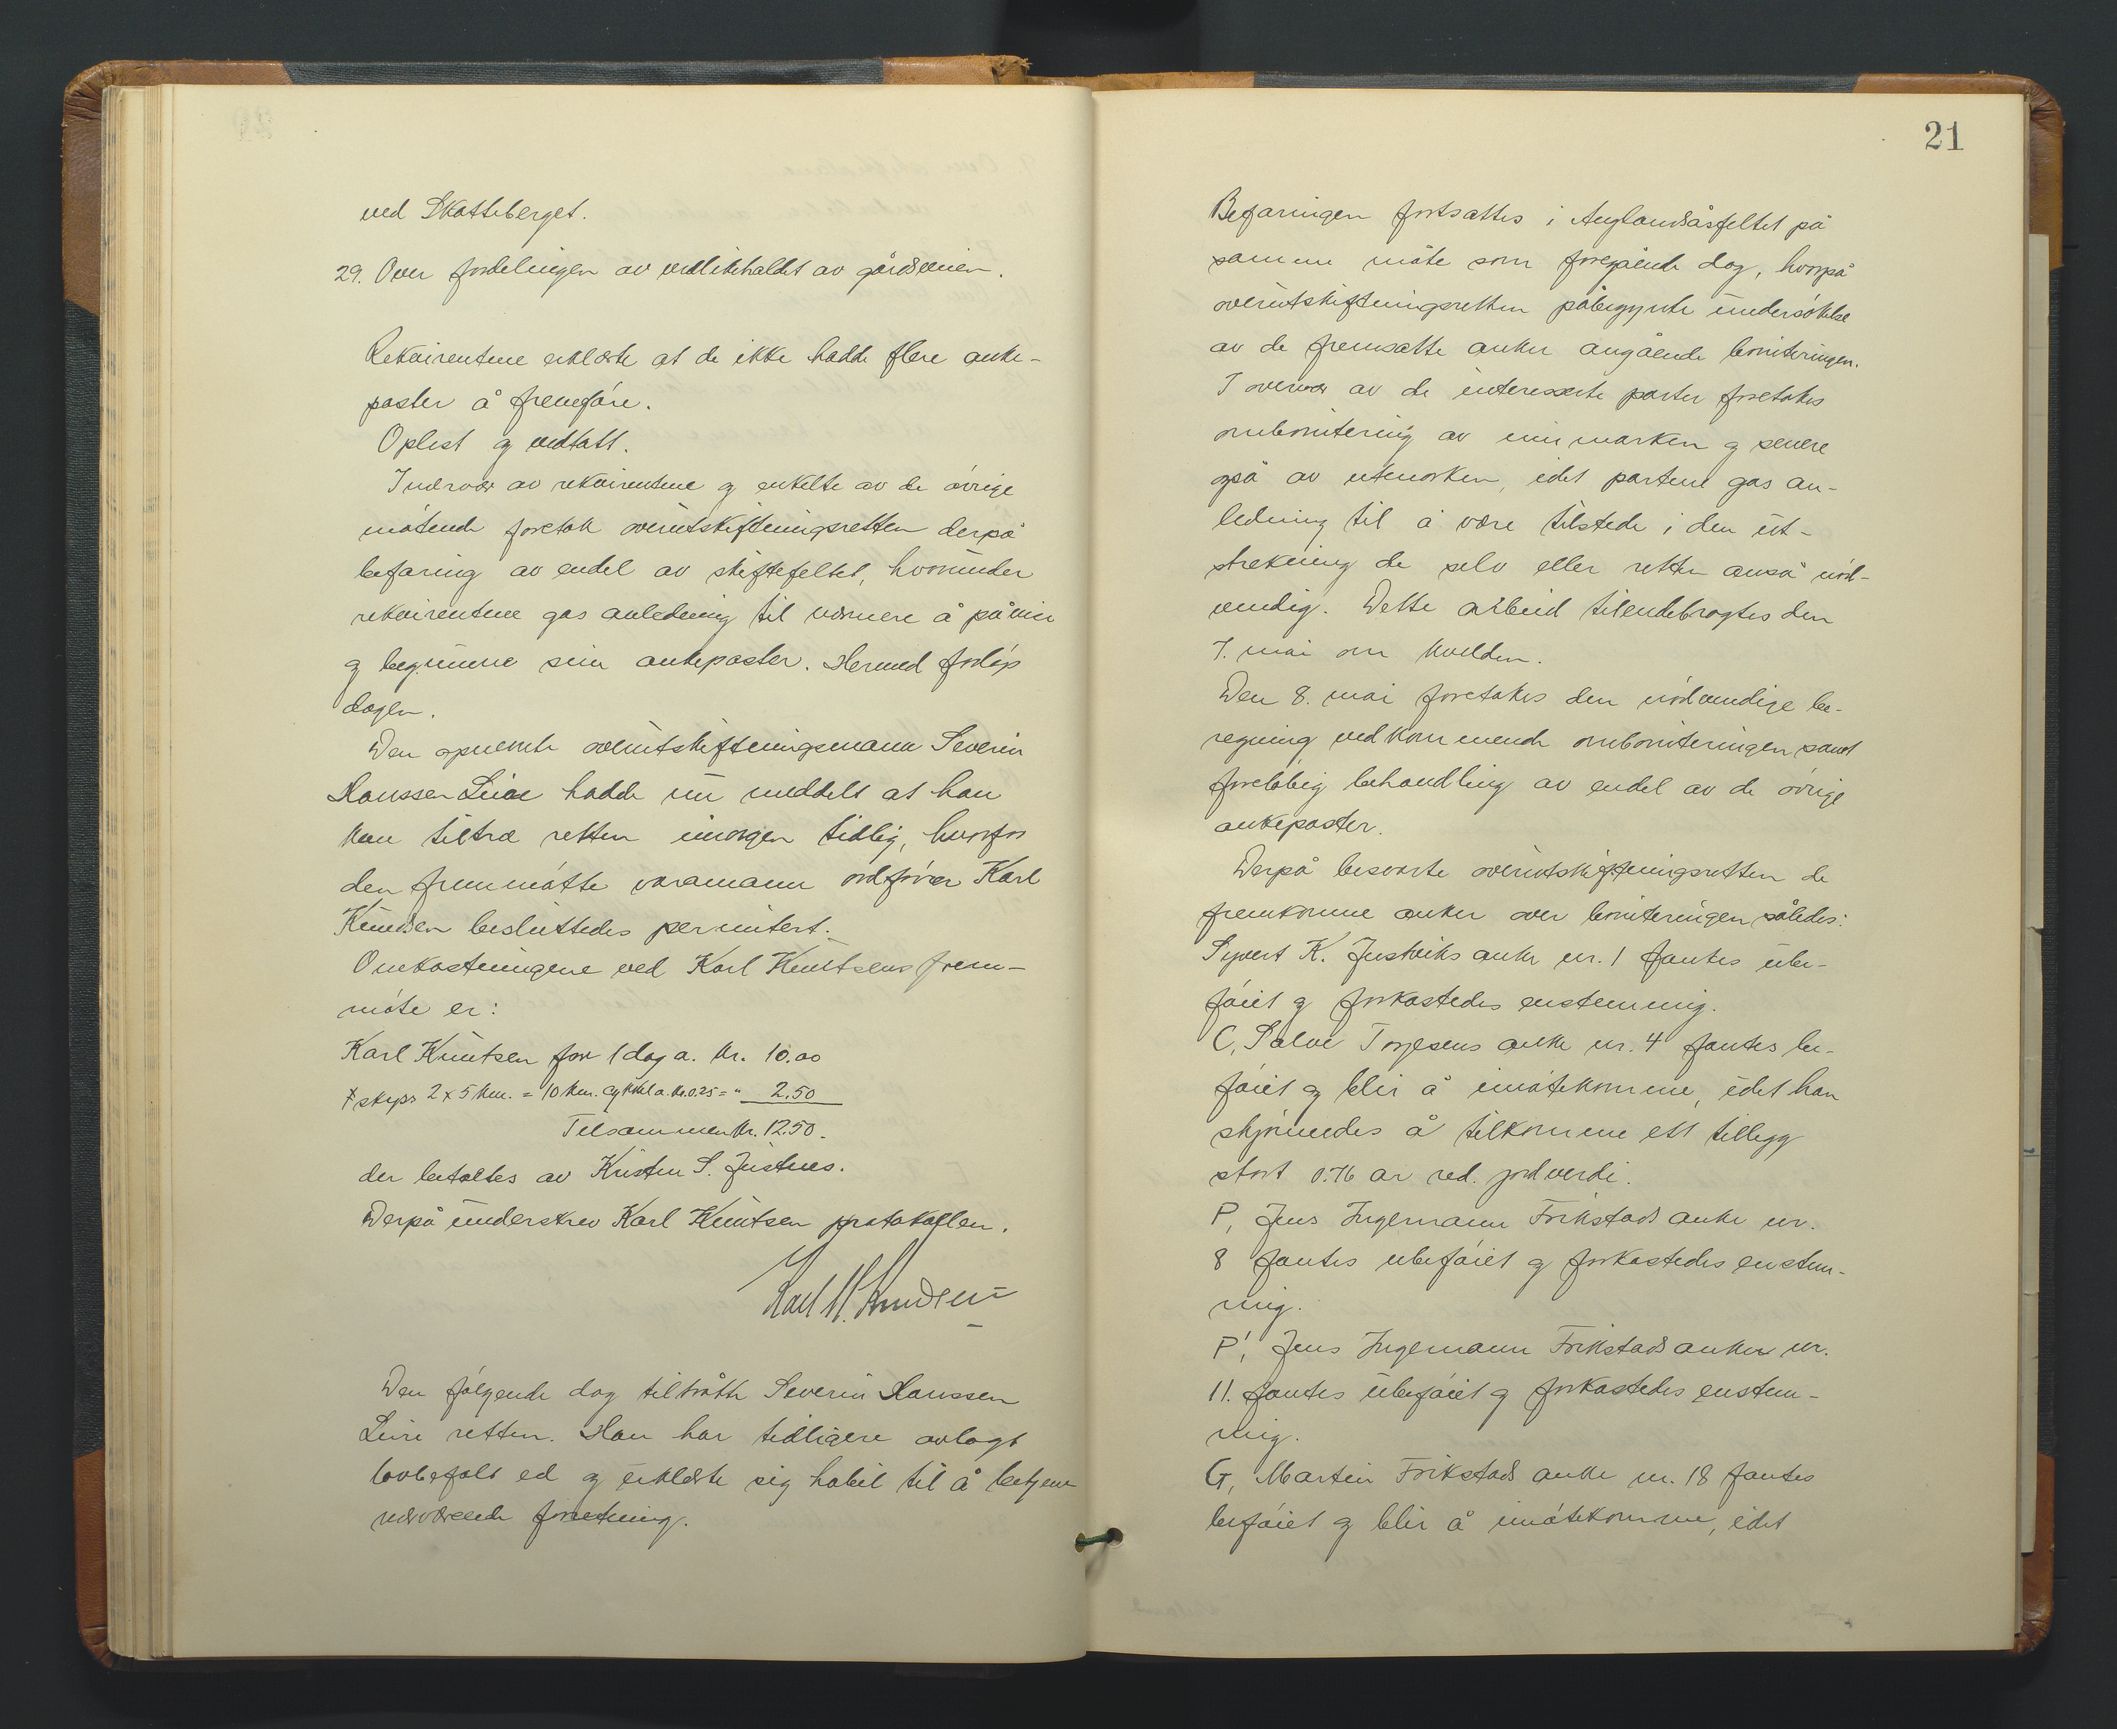 ved Skatteberget.
29. Over fordelingen av vedlikehaldet av gårdsveien.
Rekvirentene erklærte at de ikke hadde flere anke-
poster å fremføre.
Oplest og vedtatt.
I nærvær av rekvirentene og enkelte av de øvrige
møtende foretok overutskiftningsretten derpå
befaring av endel av skiftefeltet, hvorunder
rekvirentene gas anledning til nærmere å påvise
og begrunne sine ankeposter. Hermed forløp
dagen.
Den opnevnte overutskiftningsmann Severin
Hanssen Leire hadde nu meddelt at han
kan tiltræ retten imorgen tidlig, hvorfor
den fremmøtte varamann ordfører Karl
Knudsen besluttedes permitert.
Omkostningene ved Karl Knutsens frem-
møte er:
Karl Knutsen for 1 dag a. kr. 10.00
+ skyss 2 x 5 km. = 10 km. cykkel a. kr. 0.25 = " 2.50
Tilsammen kr. 12.50.
der betaltes av Kristen S. Justnes.
Derpå underskrev Karl Knutsen protokollen.
Karl K. Knudsen
Den følgende dag tiltrådte Severin Hanssen
Leire retten. Han har tidligere avlagt
lovbefalt ed og erklærte sig habil til å betjene
nærværende forretning.
21
Befaringen fortsattes i Auglandsåsfeltet på
samme måte som foregående dag, hvorpå
overutskiftningsretten påbegynte undersøkelse
av de fremsatte anker angående boniteringen.
I overvær av de interesserte parter foretokes
ombonitering av innmarken og senere
også av utmarken, idet partene gas an-
ledning til å være tilstede i den ut-
strekning de selv eller retten anså nød-
vendig. Dette arbeid tilendebragtes den
7. mai om kvelden.
Den 8. mai foretokes den nødvendige be-
regning vedkommende omboniteringen samt
foreløbig behandling av endel av de øvrige
ankeposter.
Derpå besvarte overutskiftningsretten de
fremkomne anker over boniteringen således:
Syvert K. Justviks anke nr. 1 fantes ube-
føiet og forkastedes enstemmig.
C, Salve Torjesens anke nr. 4 fantes be-
føiet og blir å imøtekomme, idet han
skjønnedes å tilkomme ett tillegg
stort 0.76 ar red. jordverdi.
P, Jens Ingemann Frikstads anke nr.
8 fantes ubeføiet og forkastedes enstem-
mig.
P', Jens Ingemann Frikstads anke nr.
11. fantes ubeføiet og forkastedes enstem-
mig.
G, Martin Frikstads anke nr. 18 fantes
beføiet og blir å imøtekomme, idet